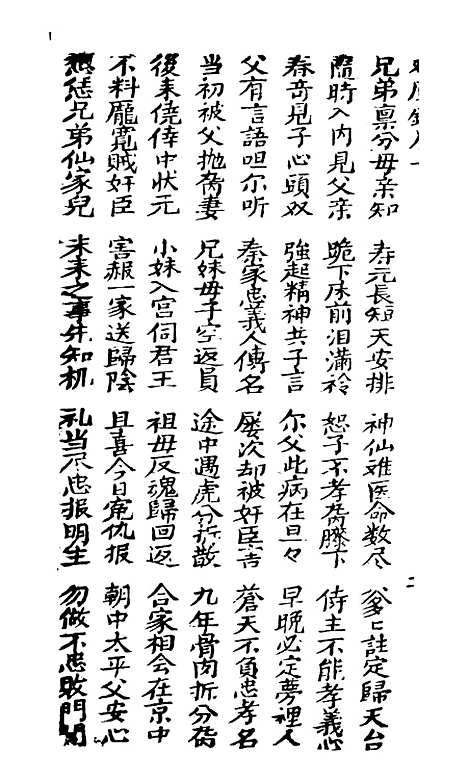 兄弟禀分毋亲知 寿元長短天安排 神仙难医命数尽 爹〻註定歸天台
隨時入内見父亲 跪下床前泪滿衿 恕子不孝嵜膝下 侍主不能孝義心
春奇見子心頭双 強起精神共子言 尔父此病在旦々 早晚必定夢裡人
父有言語呾尔听 秦家忠義人傳名 屡次却被奸臣害 蒼天不負忠孝名
当初被父抛嵜妻 兄妹毋子空返員 途中遇虎分拆散 九年骨肉折分嵜
後来僥倖中状元 小妹入宫伺君王 祖毋反魂歸回返 合家相会在京中
不料龐寬賊奸臣 害赧一家送歸陰 且喜今日寃仇报 朝中太平父安心
恁兄弟仙家兒 未来之事先知机 礼当尽忠报明主 勿做不忠敗門
二